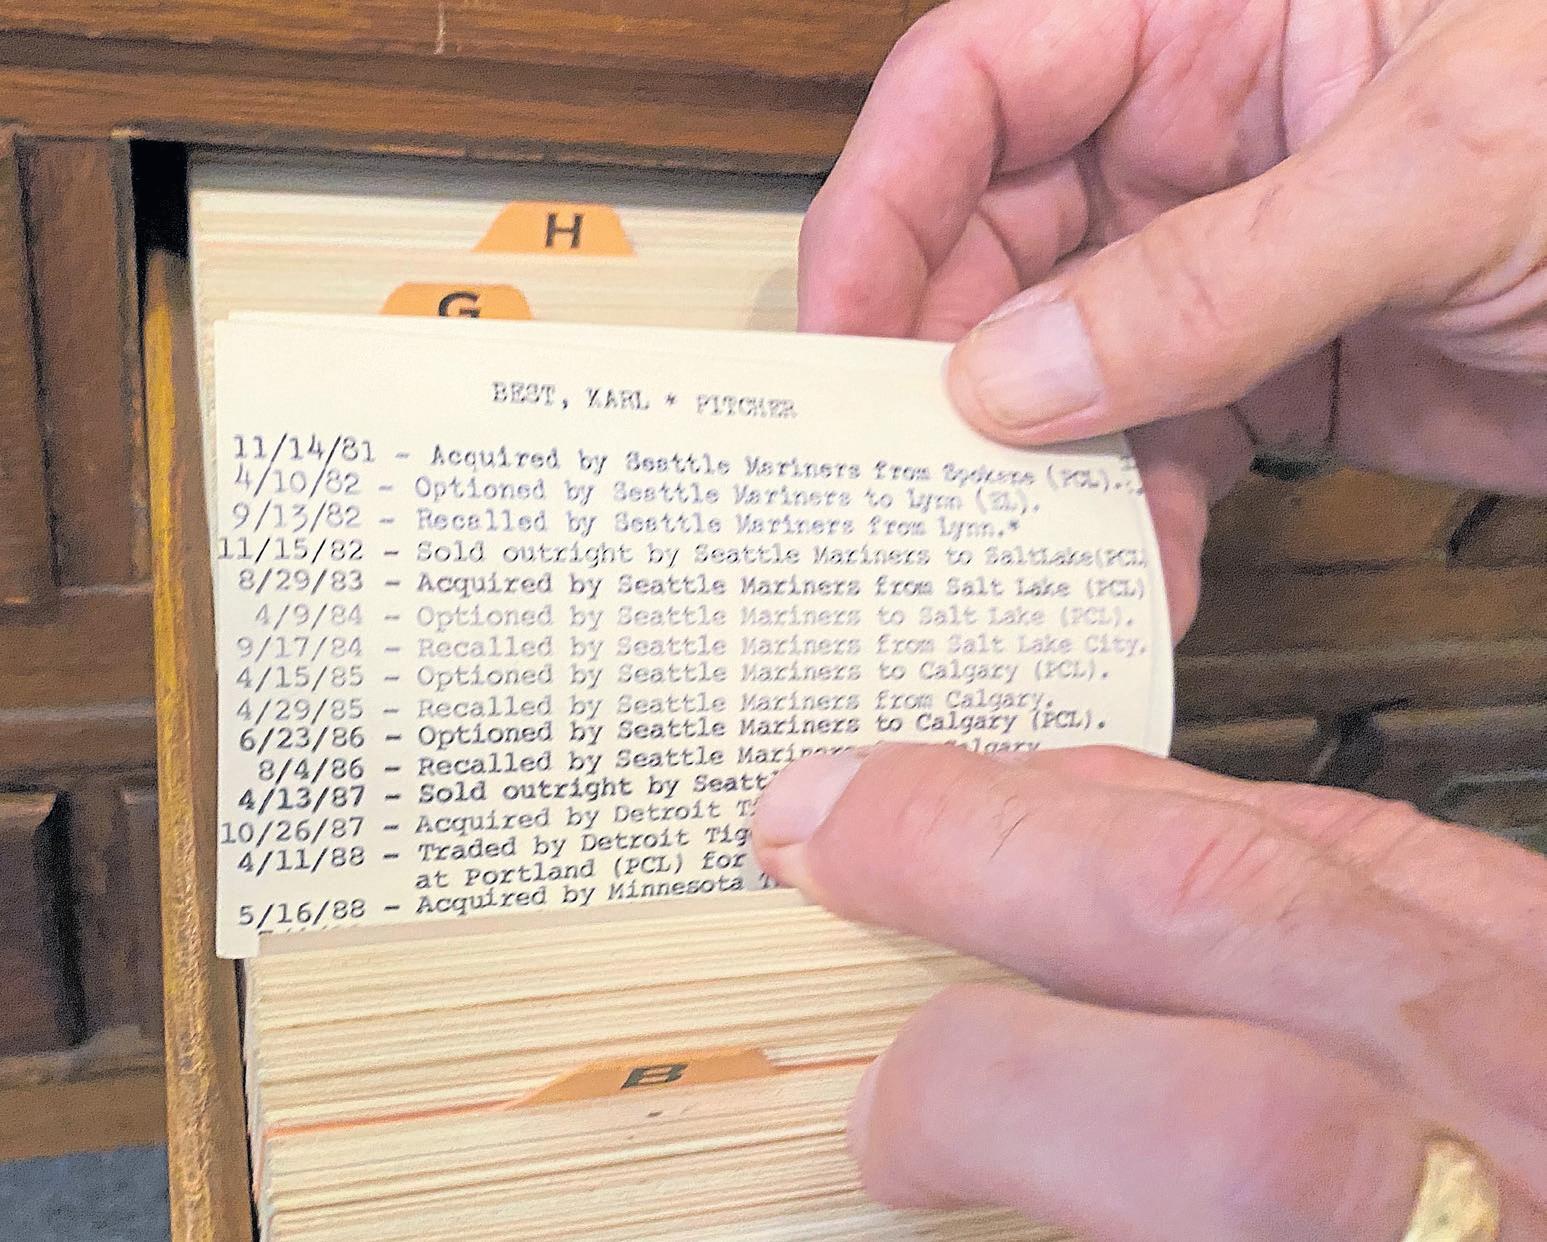 H
G
BEST, KARL * PITCHER
11/14/81 - Acquired by Seattle Mariners from Spokane (PCL).
4/10/82 - Optioned by Seattle Mariners to Lynn (EL).
9/13/82 - Recalled by Seattle Mariners from Lynn.*
11/15/82 - Sold outright by Seattle Mariners to SaltLake(PCL
8/29/83 - Acquired by Seattle Mariners from Salt Lake (PCL)
4/9/84 - Optioned by Seattle Mariners to Salt Lake (PCL).
9/17/84 - Recalled by Seattle Mariners from Salt Lake City.
4/15/85 - Optioned by Seattle Mariners to Calgary (PCL).
4/29/85 - Recalled by Seattle Mariners from Calgary.
6/23/86 - Optioned by Seattle Mariners to Calgary (PCL).
8/4/86 - Recalled by Seattle Mariners Calgary
4/13/87 - Sold outright by Seatt
10/26/87 - Acquired by Detroit T
4/11/88 - Traded by Detroit Tig
at Portland (PCL) for
5/16/88 - Acquired by Minnesota T
B